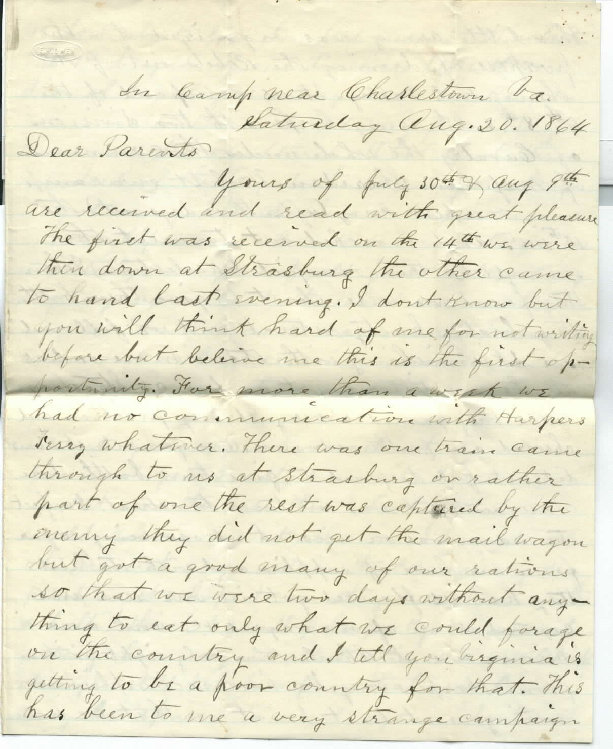 In Camp near Charlestown Va.
Saturday Aug. 20. 1864
Dear Parents
Yours of July 30th & Aug 9th
are received and read with great pleasure
The first was received on the 14th we were
then down at Strasburg the other came
to hand last evening. I dont know but
you will think hard of me for not writing
before but beleive me this is the first op-
portunity. For more than a week we
had no communication with Harpers
Ferry whatever. There was one train came
through to us at Strasburg or rather
part of one the rest was captured by the
enemy they did not get the mail wagon
but got a good many of our rations
so that we were two days without any-
thing to eat only what we could forage
on the country and I tell you Virginia is
getting to be a poor country for that. This
has been to me a very strange campaign